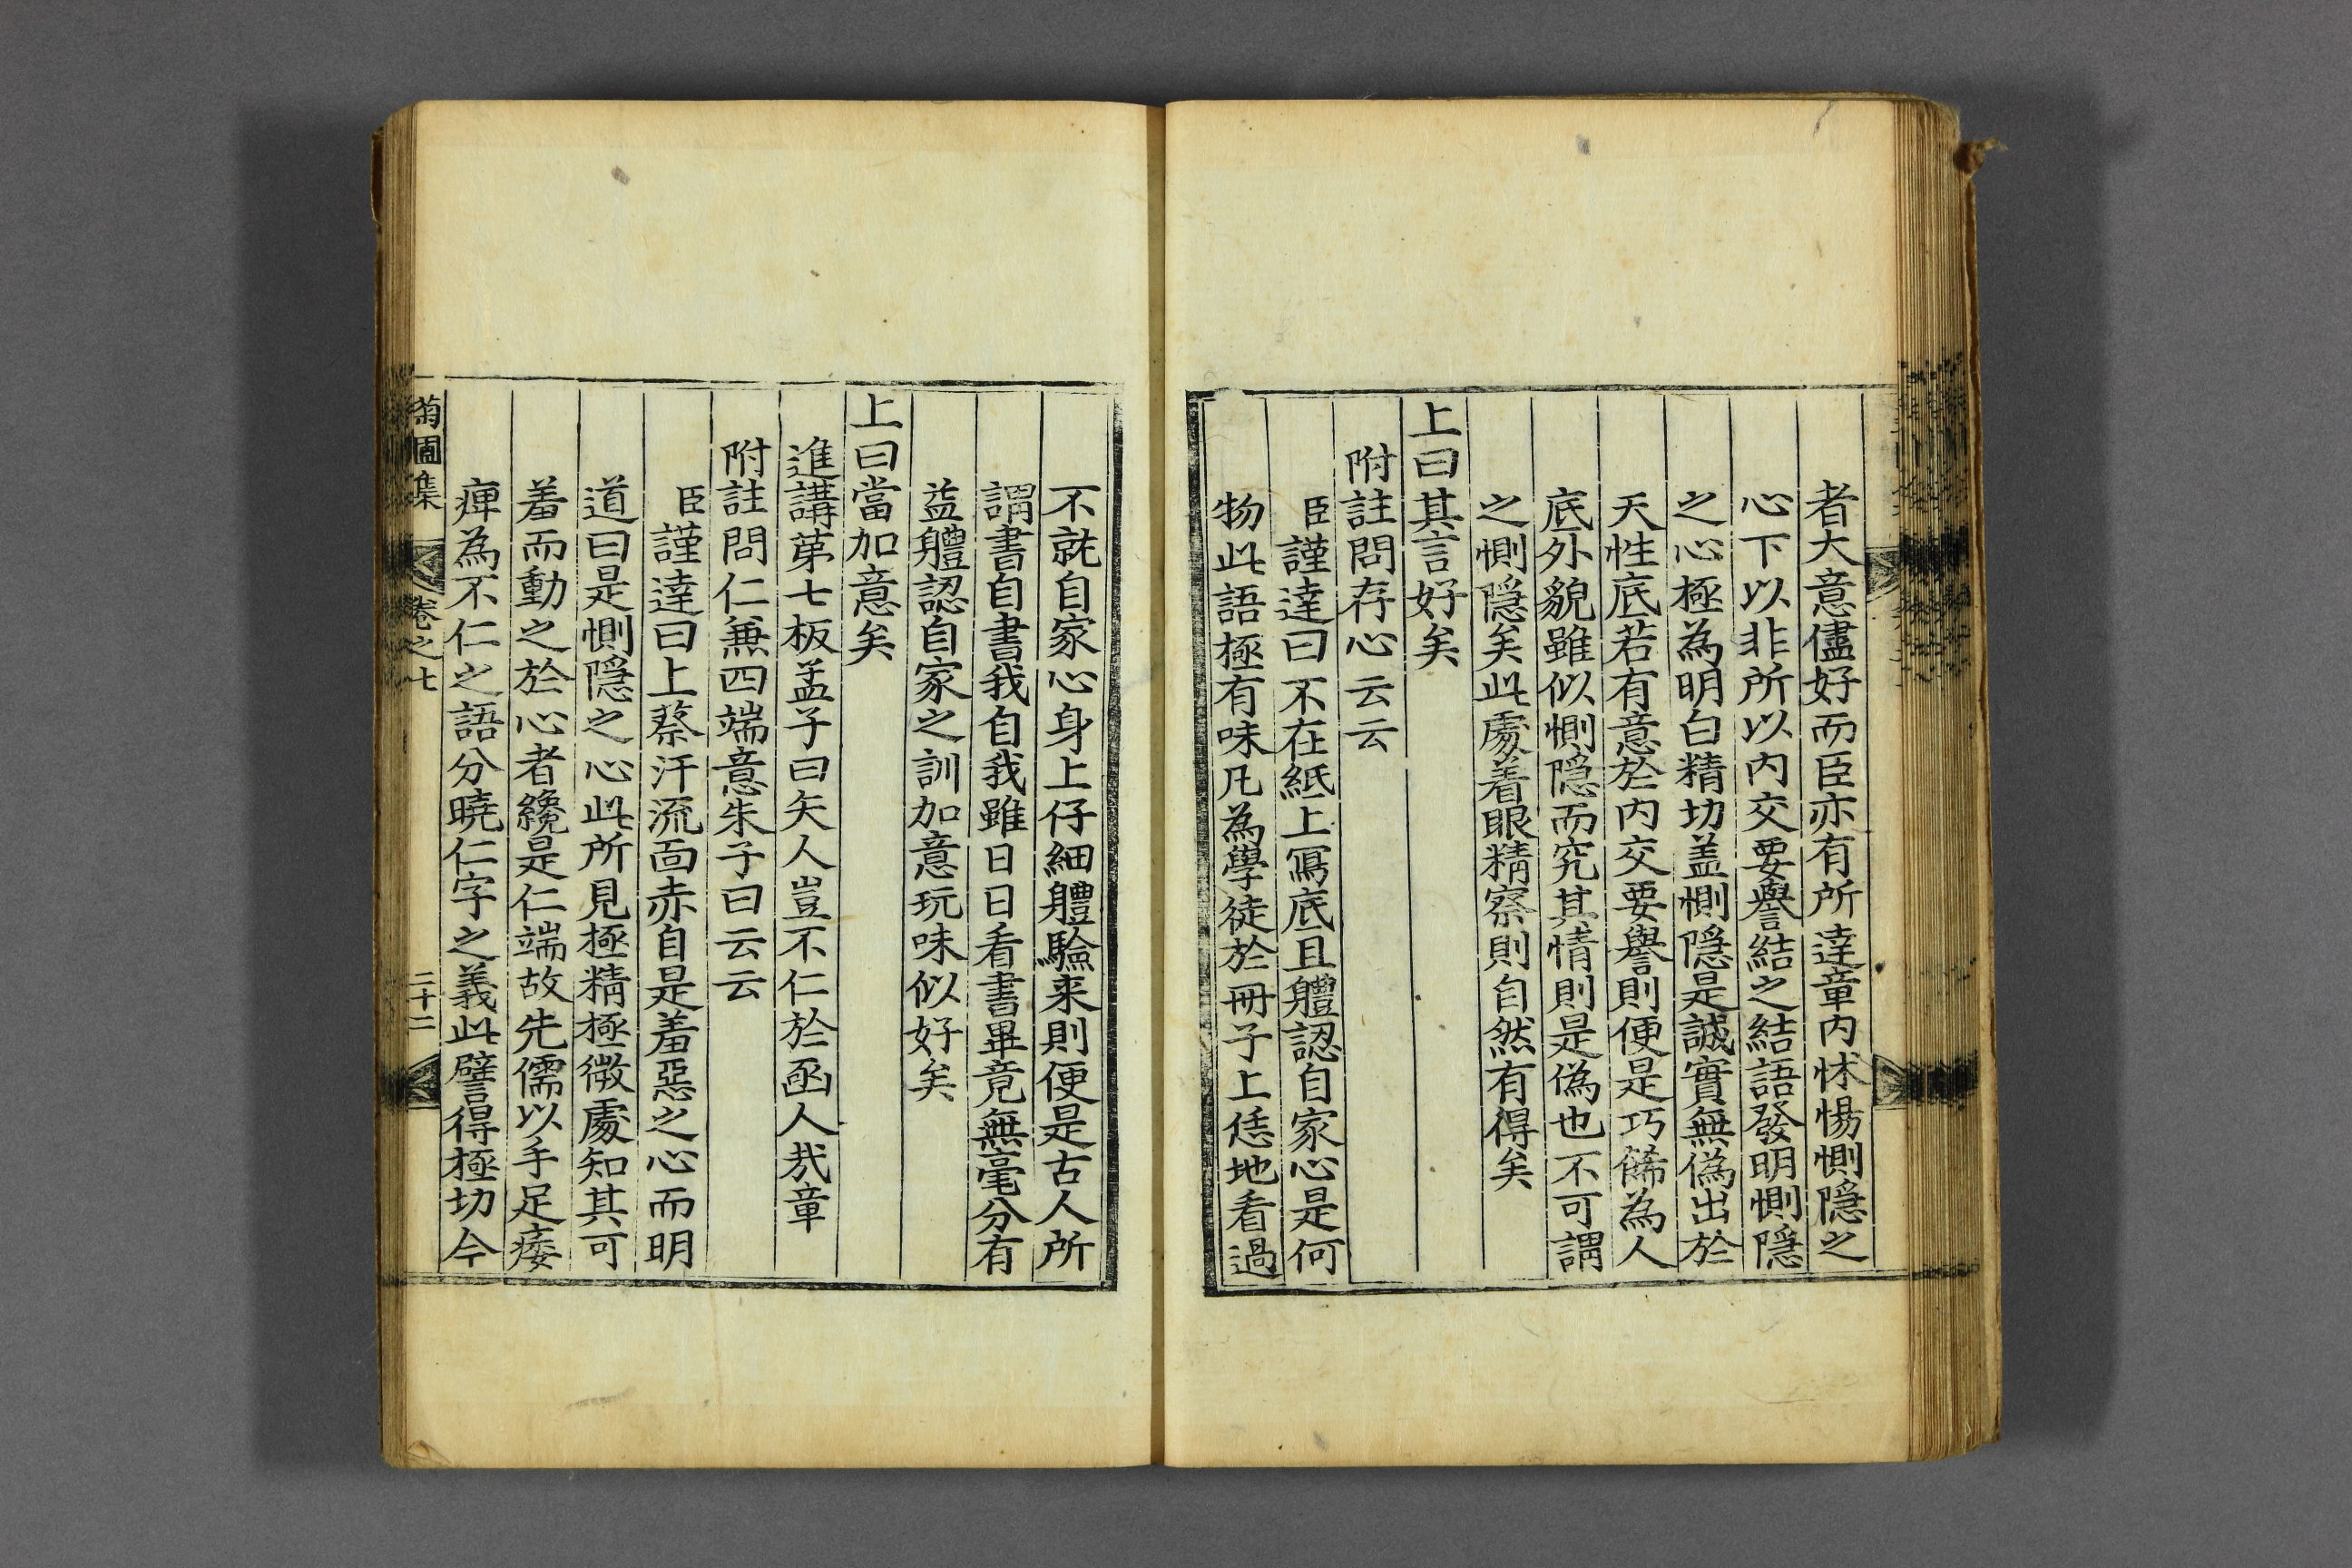 者大意儘好而臣亦有所達章內怵惕惻隱之
心下以非所以內交要譽結之結語發明惻隱
之心極為明白精切盖惻隱是誠實無僞出於
天性底若有意於內交要譽則便是巧餙為人
底外貌雖似惻隱而究其情則是僞也不可謂
之惻隱矣此處着眼精察則自然有得矣
上曰其言好矣
附註問存心云云
臣謹達曰不在紙上寫底且軆認自家心是何
物此語極有味凡為學徒於冊子上恁地看過
不就自家心身上仔細軆驗来則便是古人所
謂書自書我自我雖日日看書畢竟無毫分有
益軆認自家之訓加意玩味似好矣
上曰當加意矣
進講第七板孟子曰矢人豈不仁於函人哉章
附註問仁兼四端意朱子曰云云
臣謹達曰上蔡汗流面赤自是羞惡之心而明
道曰是惻隱之心此所見極精極微處知其可
羞而動之於心者纔是仁端故先儒以手足痿
痺為不仁之語分曉仁字之義此譬得極切今
菊圃集 卷之七 二十二